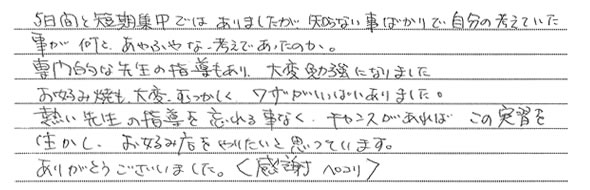 5日間と短期集中ではありましたが、知らない事ばかりで自分の考えていた
事が何と、あやふやな考えであったのか。
専門的な先生の指導もあり、大変勉強になりました
お好み焼も、大変むつかしく ワザがいいぱいありました。
熱い先生の指導を忘れる事なく、チャンスがあれば この実習を
生かし、お好み店をやりたいと思っています。
ありがとうございました。<感謝 ペコリ>